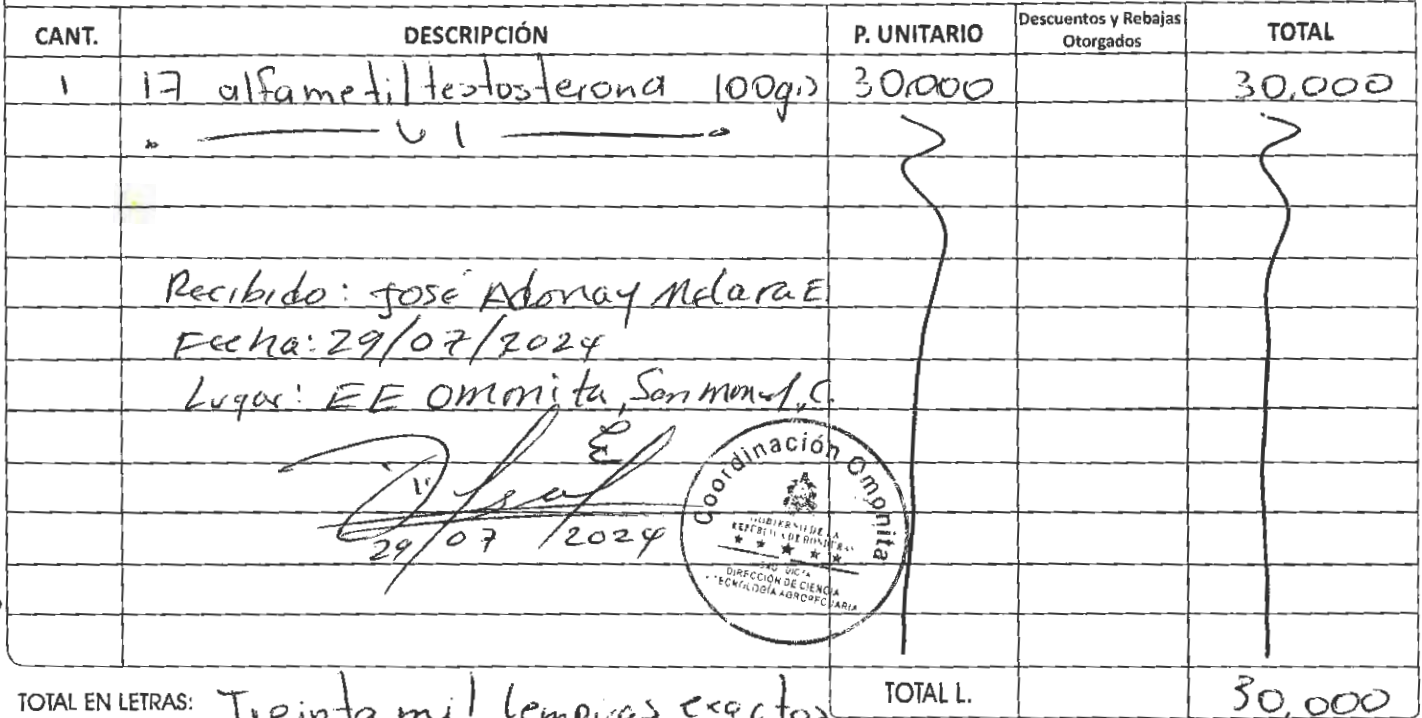 CANT. DESCRIPCIÓN P. UNITARIO Descuentos y Rebajas Otorgados TOTAL
1 17 alfametiltestosterona 100g.) 30.000 30.000
Recibido: José Adonay Melara E
Fecha: 29/07/2024
Lugar: EE Omonita, San Manuel, C.
29/07/2024
Coordinación Omonita
GOBIERNO DE LA
REPÚBLICA DE HONDURAS
DIRECCIÓN DE CIENCIA
TECNOLOGÍA AGROPECUARIA
TOTAL EN LETRAS: Treinta mil lempiras exactos TOTAL L. 30,000